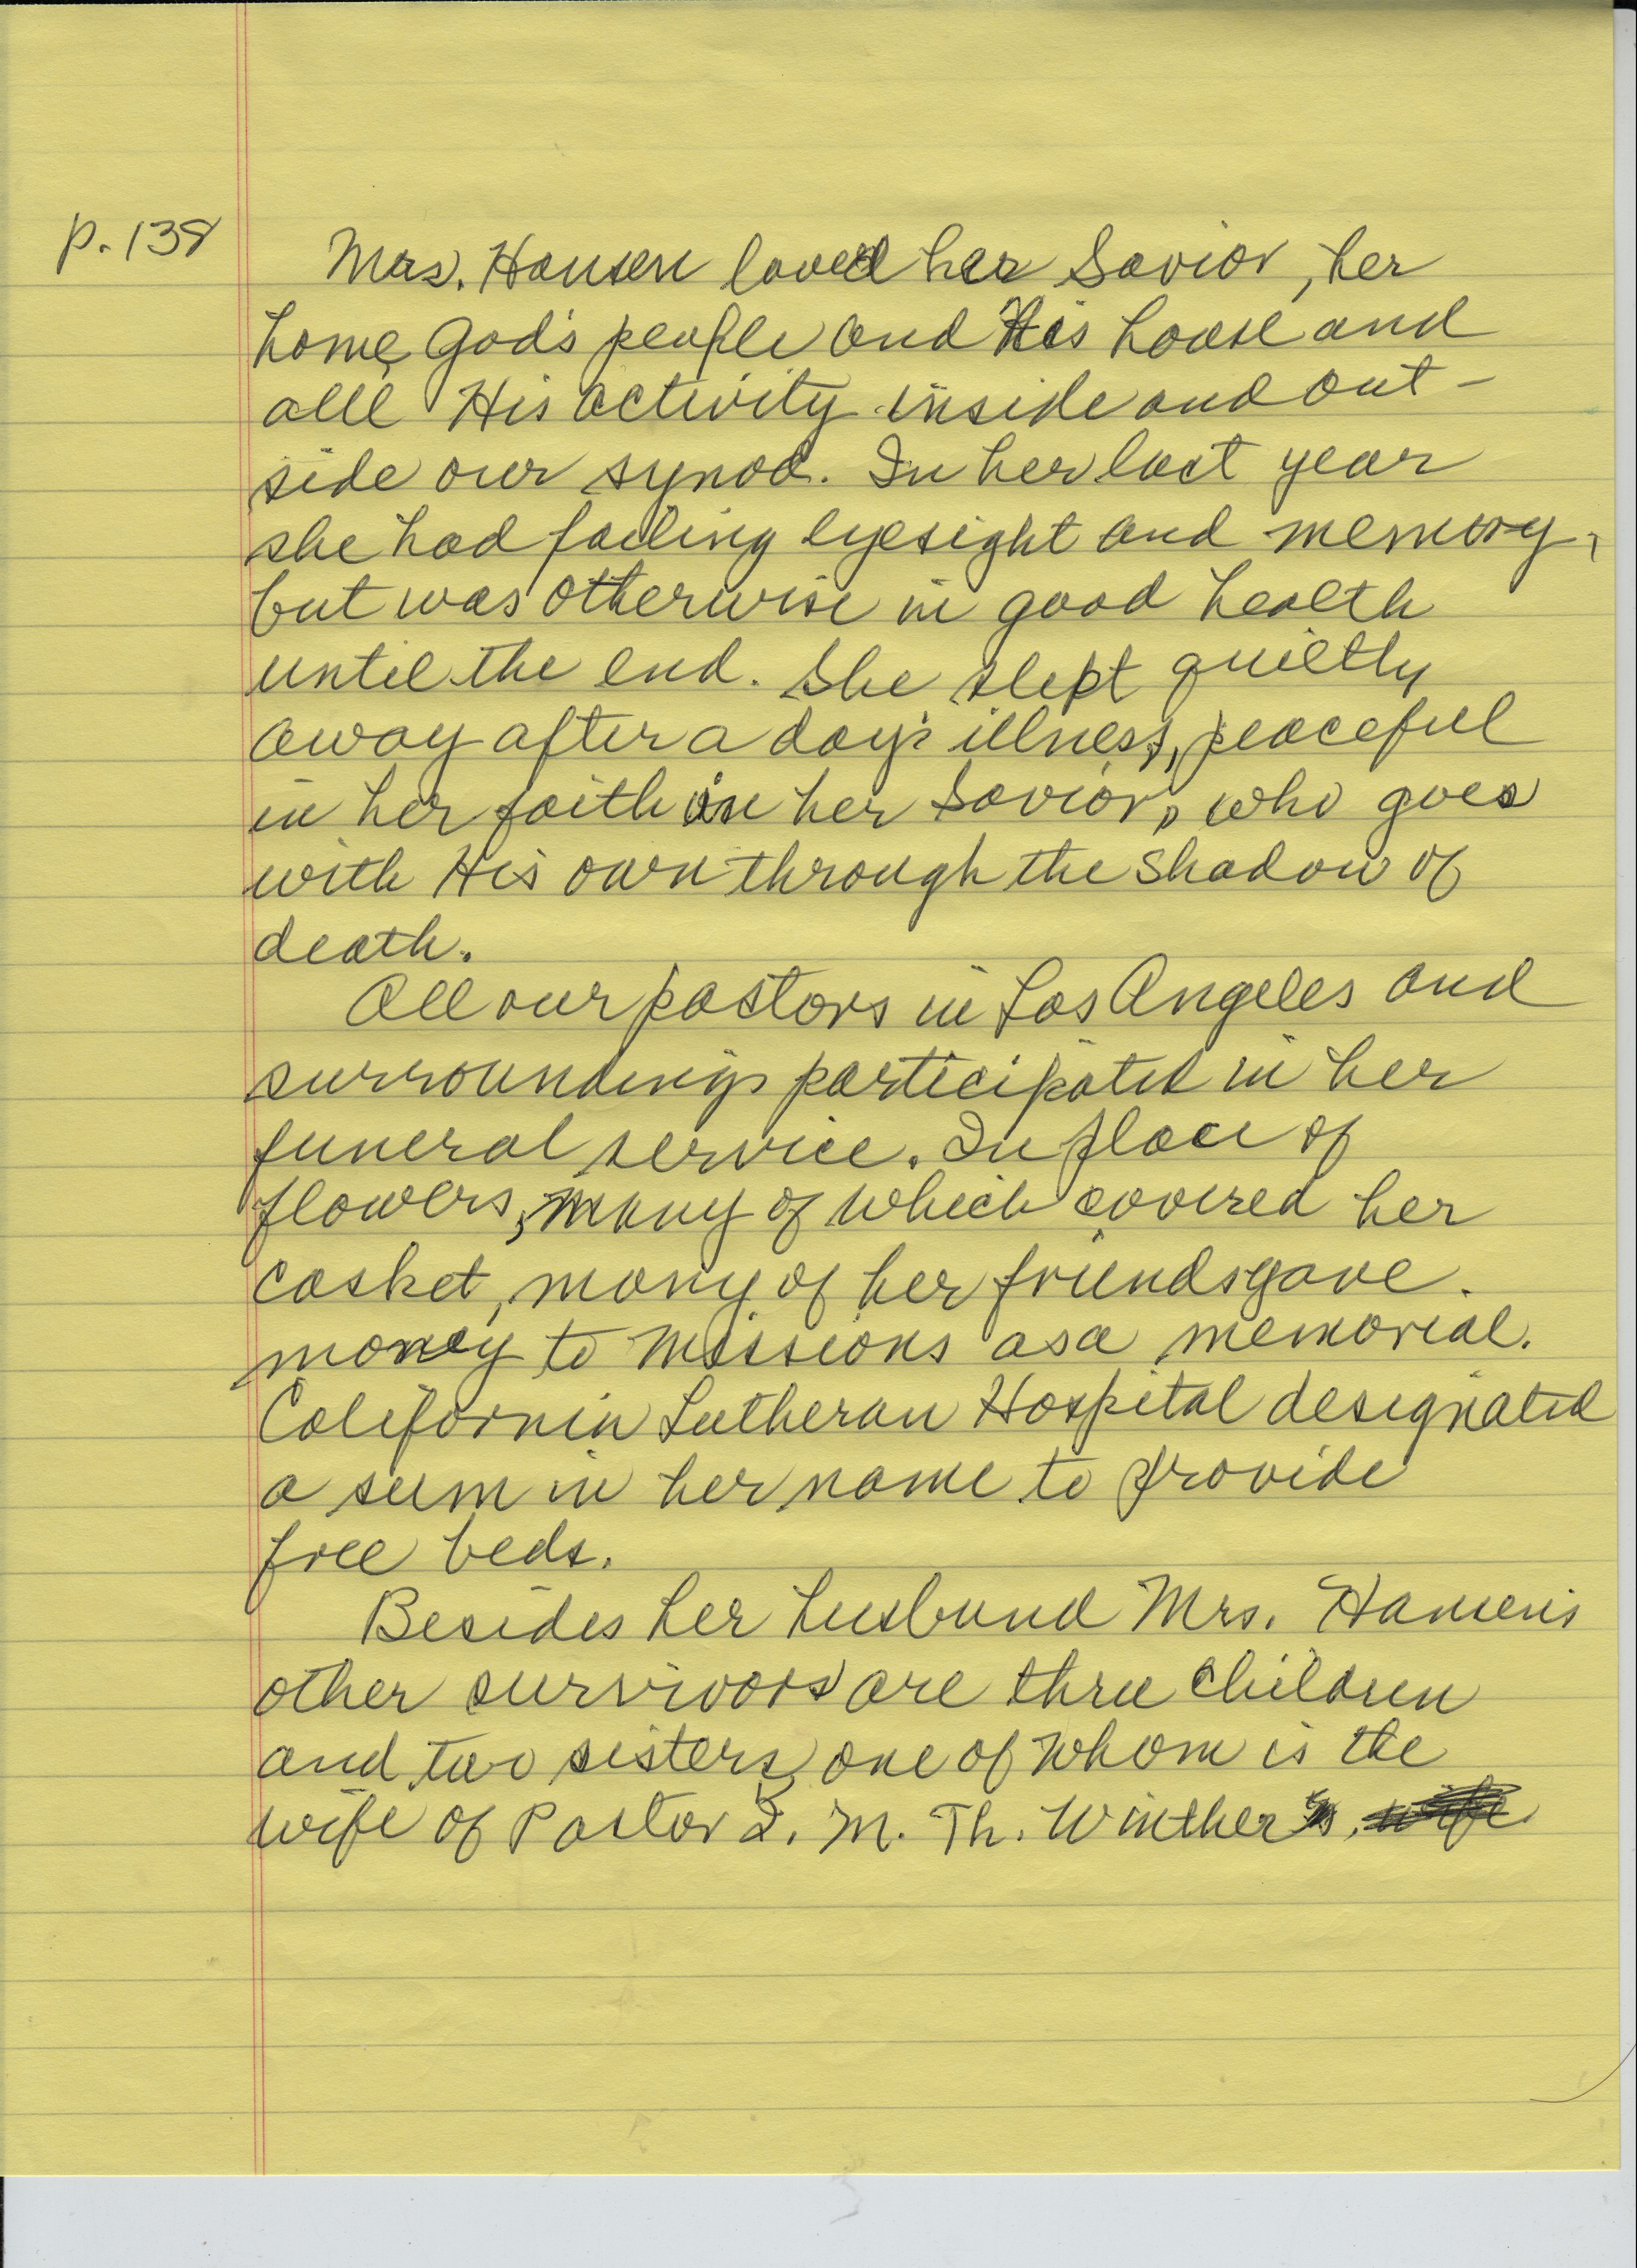 p. 138
Mrs. Hansen loved her Savior, her
home, God's people and His house and
all His activity inside and out-
side our synod. In her last year
she had failing eyesight and memory,
but was otherwise in good health
until the end. She slept quietly
away after a day's illness, peaceful
in her faith in her Savior, who goes
with His own through the shadow of
death.
All our pastors in Los Angeles and
surroundings participated in her
funeral service. In place of
flowers, many of which covered her
casket, many of her friends gave
money to missions as a memorial.
California Lutheran Hospital designated
a sum in her name to provide
free beds.
Besides her husband Mrs. Hansen's
other survivors are three children
and two sisters, one of whom is the
wife of Pastor J. M. Th. Winther.